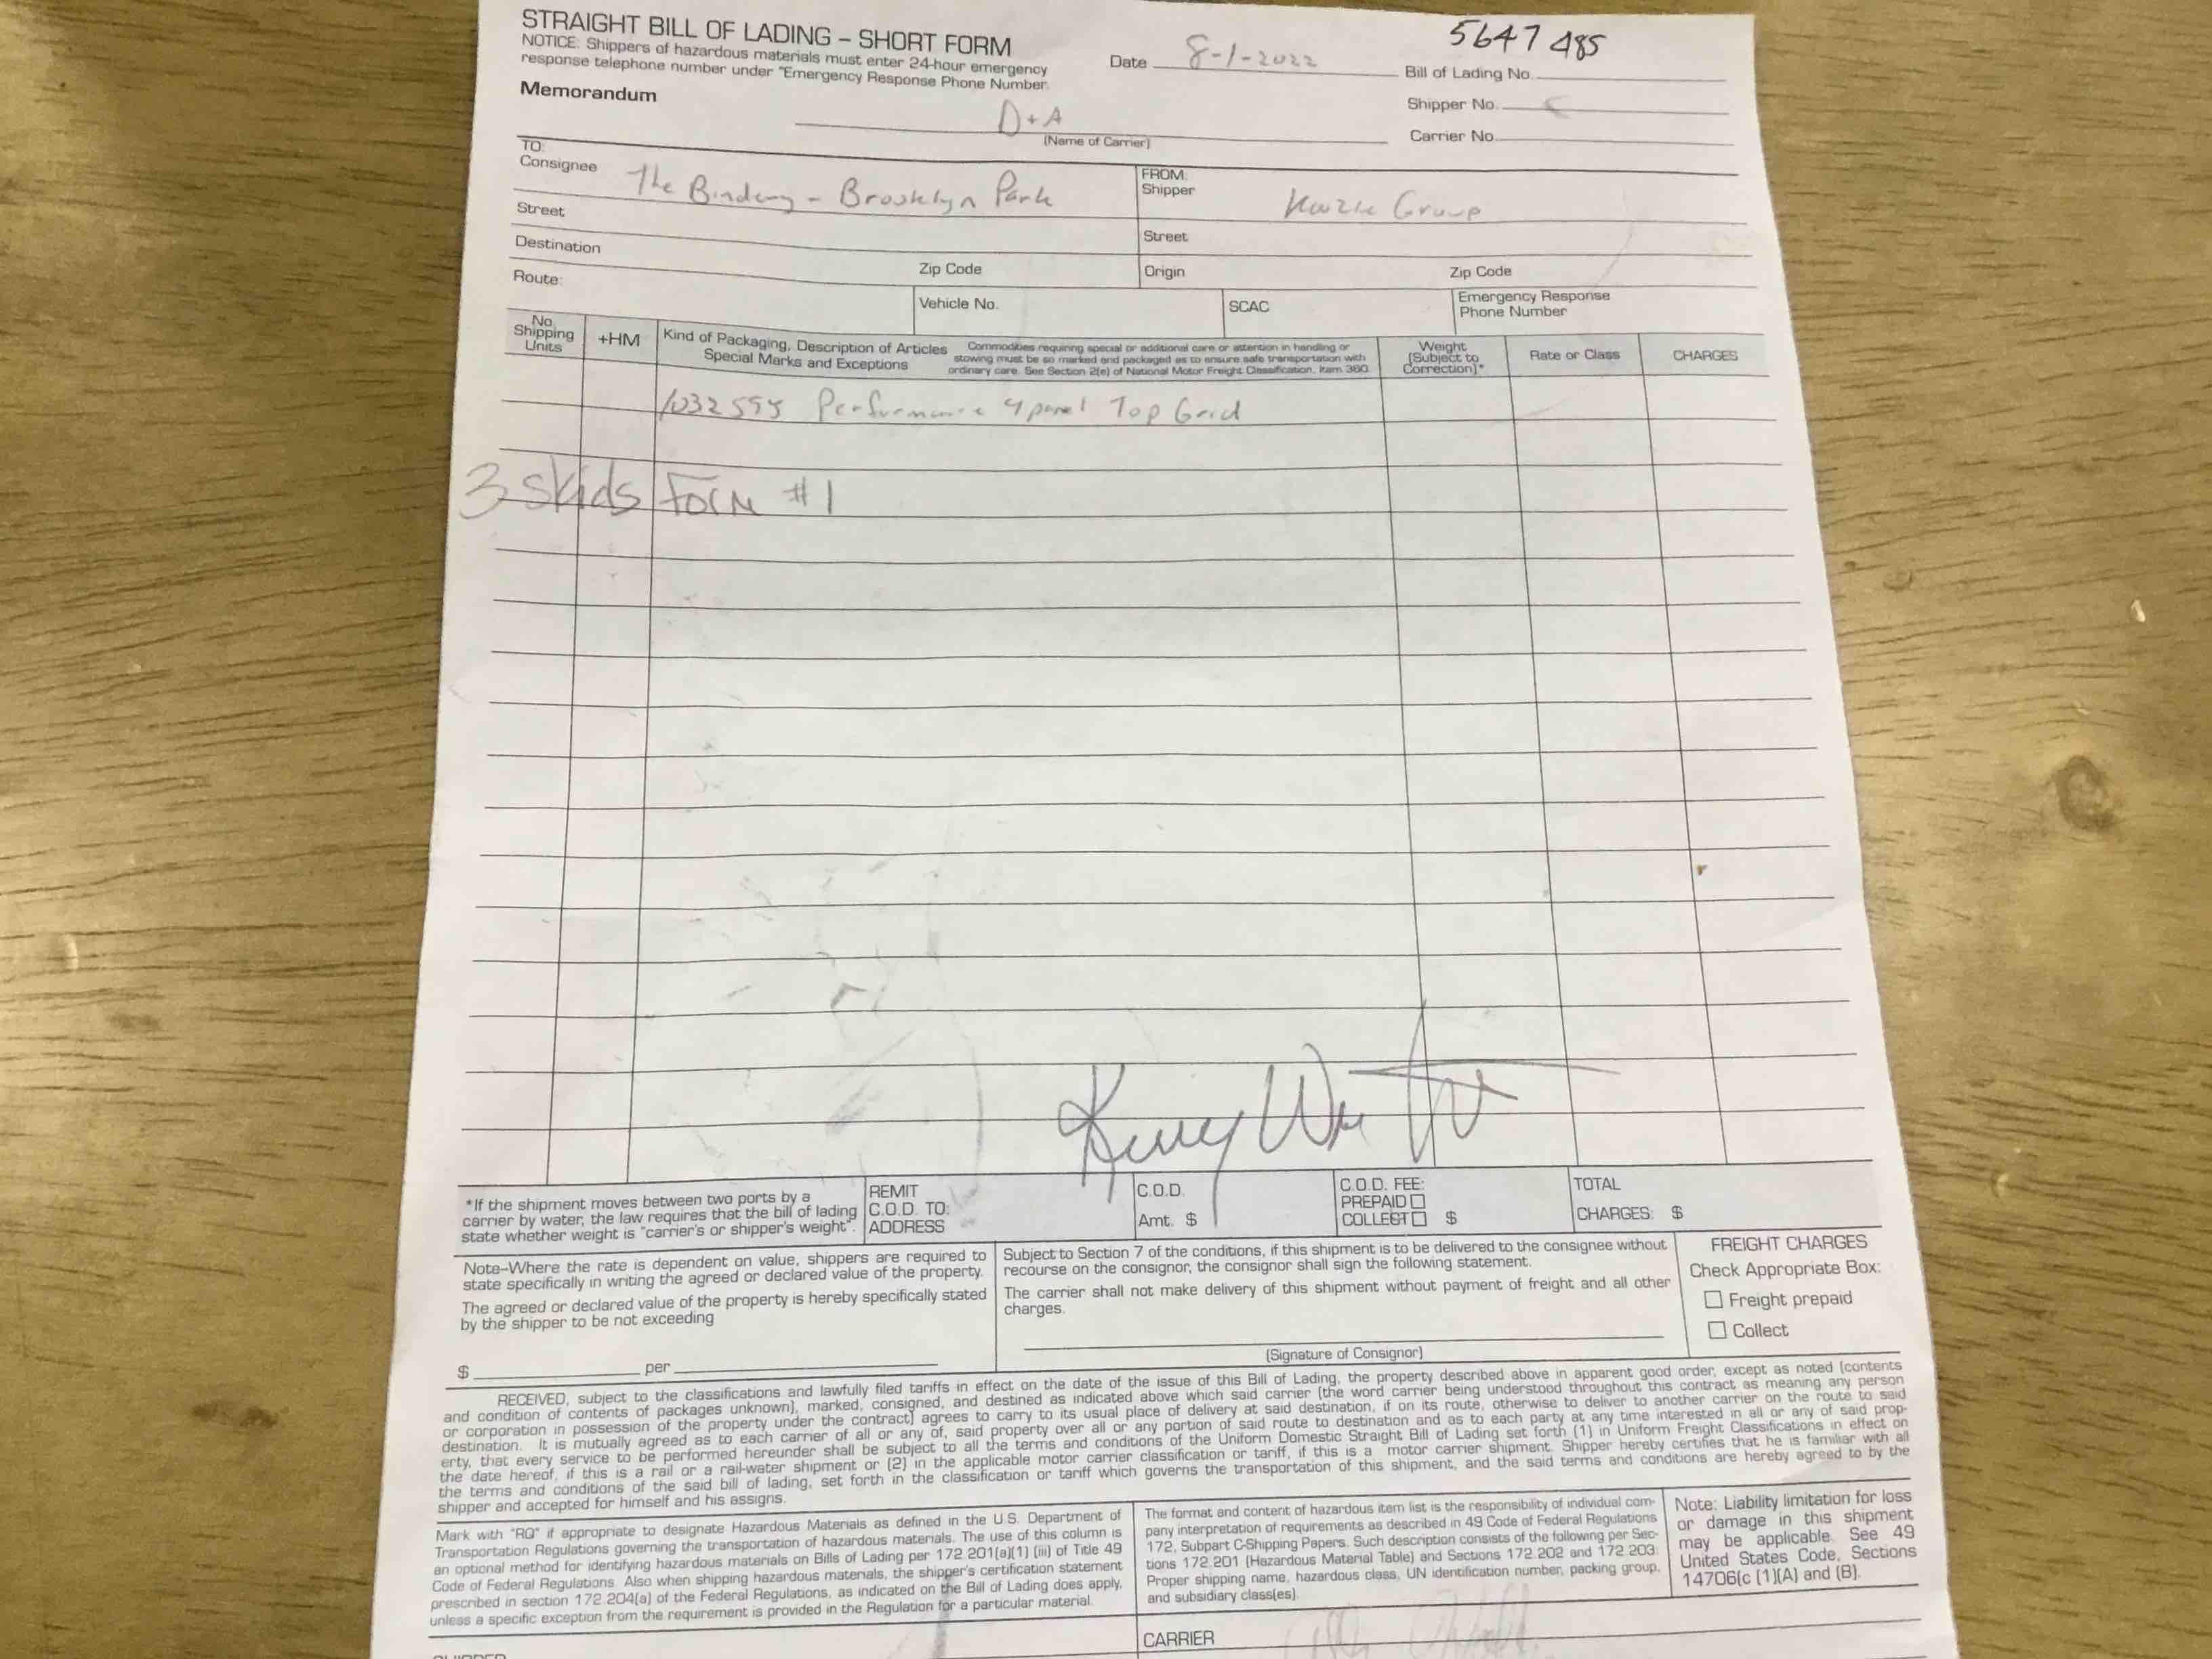 STRAIGHT BILL OF LADING – SHORT FORM
NOTICE: Shippers of hazardous materials must enter 24-hour emergency
response telephone number under "Emergency Response Phone Number.
Memorandum
Date 8-1-2022
5647485
Bill of Lading No.
Shipper No.
Carrier No.
D+A
(Name of Carrier)
TO:
Consignee The Bindery - Brooklyn Park
Street
Destination
Zip Code
Route:
FROM:
Shipper Group
Street
Origin
Zip Code
Vehicle No.
SCAC
Emergency Response
Phone Number
No.
Shipping
Units
+HM
Kind of Packaging, Description of Articles
Special Marks and Exceptions
Commodities requiring special or additional care or attention in handling or
stowing must be so marked and packaged as to ensure safe transportation with
ordinary care. See Section 2(e) of National Motor Freight Classification, Item 360.
Weight
(Subject to
Correction)*
Rate or Class
CHARGES
Performance 4 panel Top Grid
3 skids Form #1
*If the shipment moves between two ports by a
carrier by water, the law requires that the bill of lading
state whether weight is "carrier's or shipper's weight".
REMIT
C.O.D. TO:
ADDRESS
C.O.D.
Amt. $
C.O.D. FEE:
PREPAID
COLLECT $
TOTAL
CHARGES: $
Note–Where the rate is dependent on value, shippers are required to
state specifically in writing the agreed or declared value of the property.
The agreed or declared value of the property is hereby specifically stated
by the shipper to be not exceeding
$ per
Subject to Section 7 of the conditions, if this shipment is to be delivered to the consignee without
recourse on the consignor, the consignor shall sign the following statement.
The carrier shall not make delivery of this shipment without payment of freight and all other
charges.
(Signature of Consignor)
FREIGHT CHARGES
Check Appropriate Box:
Freight prepaid
Collect
RECEIVED, subject to the classifications and lawfully filed tariffs in effect on the date of the issue of this Bill of Lading, the property described above in apparent good order, except as noted (contents
and condition of contents of packages unknown), marked, consigned, and destined as indicated above which said carrier (the word carrier being understood throughout this contract as meaning any person
or corporation in possession of the property under the contract) agrees to carry to its usual place of delivery at said destination, if on its route, otherwise to deliver to another carrier on the route to said
destination. It is mutually agreed as to each carrier of all or any of, said property over all or any portion of said route to destination and as to each party at any time interested in all or any of said prop-
erty, that every service to be performed hereunder shall be subject to all the terms and conditions of the Uniform Domestic Straight Bill of Lading set forth (1) in Uniform Freight Classifications in effect on
the date hereof, if this is a rail or a rail-water shipment or (2) in the applicable motor carrier classification or tariff, if this is a motor carrier shipment. Shipper hereby certifies that he is familiar with all
the terms and conditions of the said bill of lading, set forth in the classification or tariff which governs the transportation of this shipment, and the said terms and conditions are hereby agreed to by the
shipper and accepted for himself and his assigns.
Mark with "RQ" if appropriate to designate Hazardous Materials as defined in the U.S. Department of
Transportation Regulations governing the transportation of hazardous materials. The use of this column is
an optional method for identifying hazardous materials on Bills of Lading per 172.201(a)(1) (iii) of Title 49
Code of Federal Regulations. Also when shipping hazardous materials, the shipper's certification statement
prescribed in section 172.204(a) of the Federal Regulations, as indicated on the Bill of Lading does apply,
unless a specific exception from the requirement is provided in the Regulation for a particular material.
The format and content of hazardous item list is the responsibility of individual com-
pany interpretation of requirements as described in 49 Code of Federal Regulations
172, Subpart C-Shipping Papers. Such description consists of the following per Sec-
tions 172.201 (Hazardous Material Table) and Sections 172.202 and 172.203:
Proper shipping name, hazardous class, UN identification number, packing group,
and subsidiary class(es).
Note: Liability limitation for loss
or damage in this shipment
may be applicable. See 49
United States Code, Sections
14706(c (1)(A) and (B).
SHIPPER
CARRIER